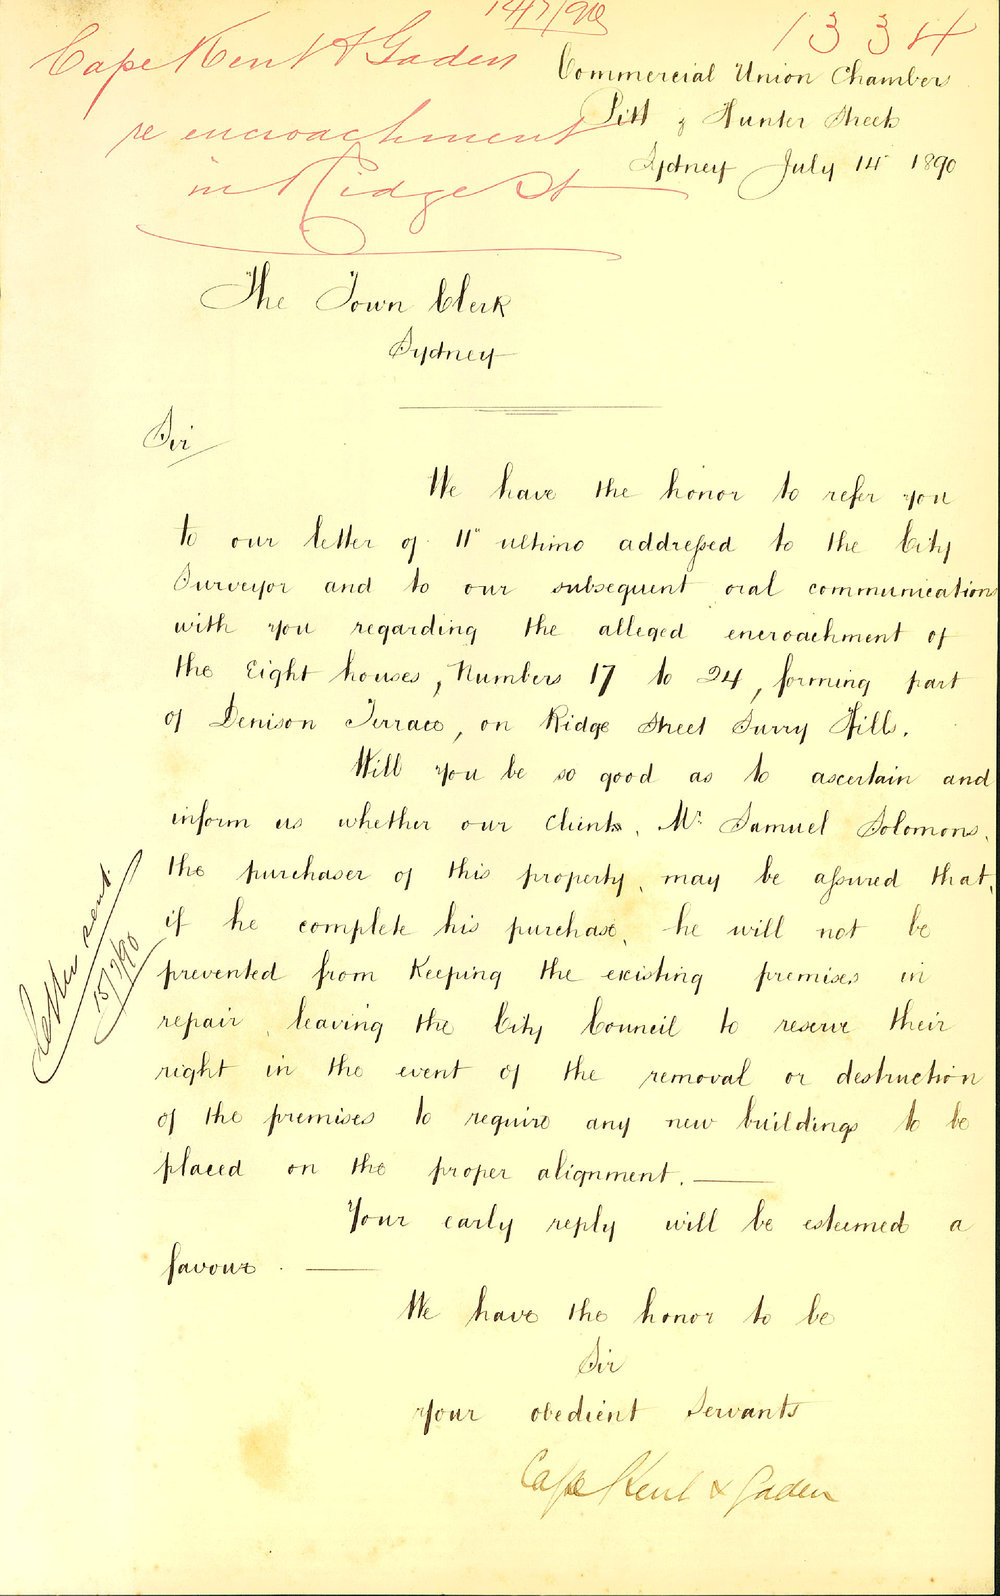 14/7/90
1334
Cape Kent & Gaden
re encroachment
in Ridge St
Commercial Union Chambers
Pitt & Hunter Streets
Sydney July 14th 1890
The Town Clerk
Sydney
Sir
We have the honor to refer you
to our letter of 11th ultimo addressed to the City
Surveyor and to our subsequent oral communication
with you regarding the alleged encroachment of
the Eight houses, Numbers 17 to 24, forming part
of Denison Terrace, on Ridge Street Surry Hills.
Will you be so good as to ascertain and
inform us whether our client, Mr Samuel Solomons,
the purchaser of this property, may be assured that,
if he complete his purchase, he will not be
prevented from keeping the existing premises in
repair, leaving the City Council to reserve their
right in the event of the removal or destruction
of the premises to require any new buildings to be
placed on the proper alignment.
Your early reply will be esteemed a
favour.
We have the honor to be
Sir
Your obedient Servants
Cape Kent & Gaden
Letter sent.
15/7/90